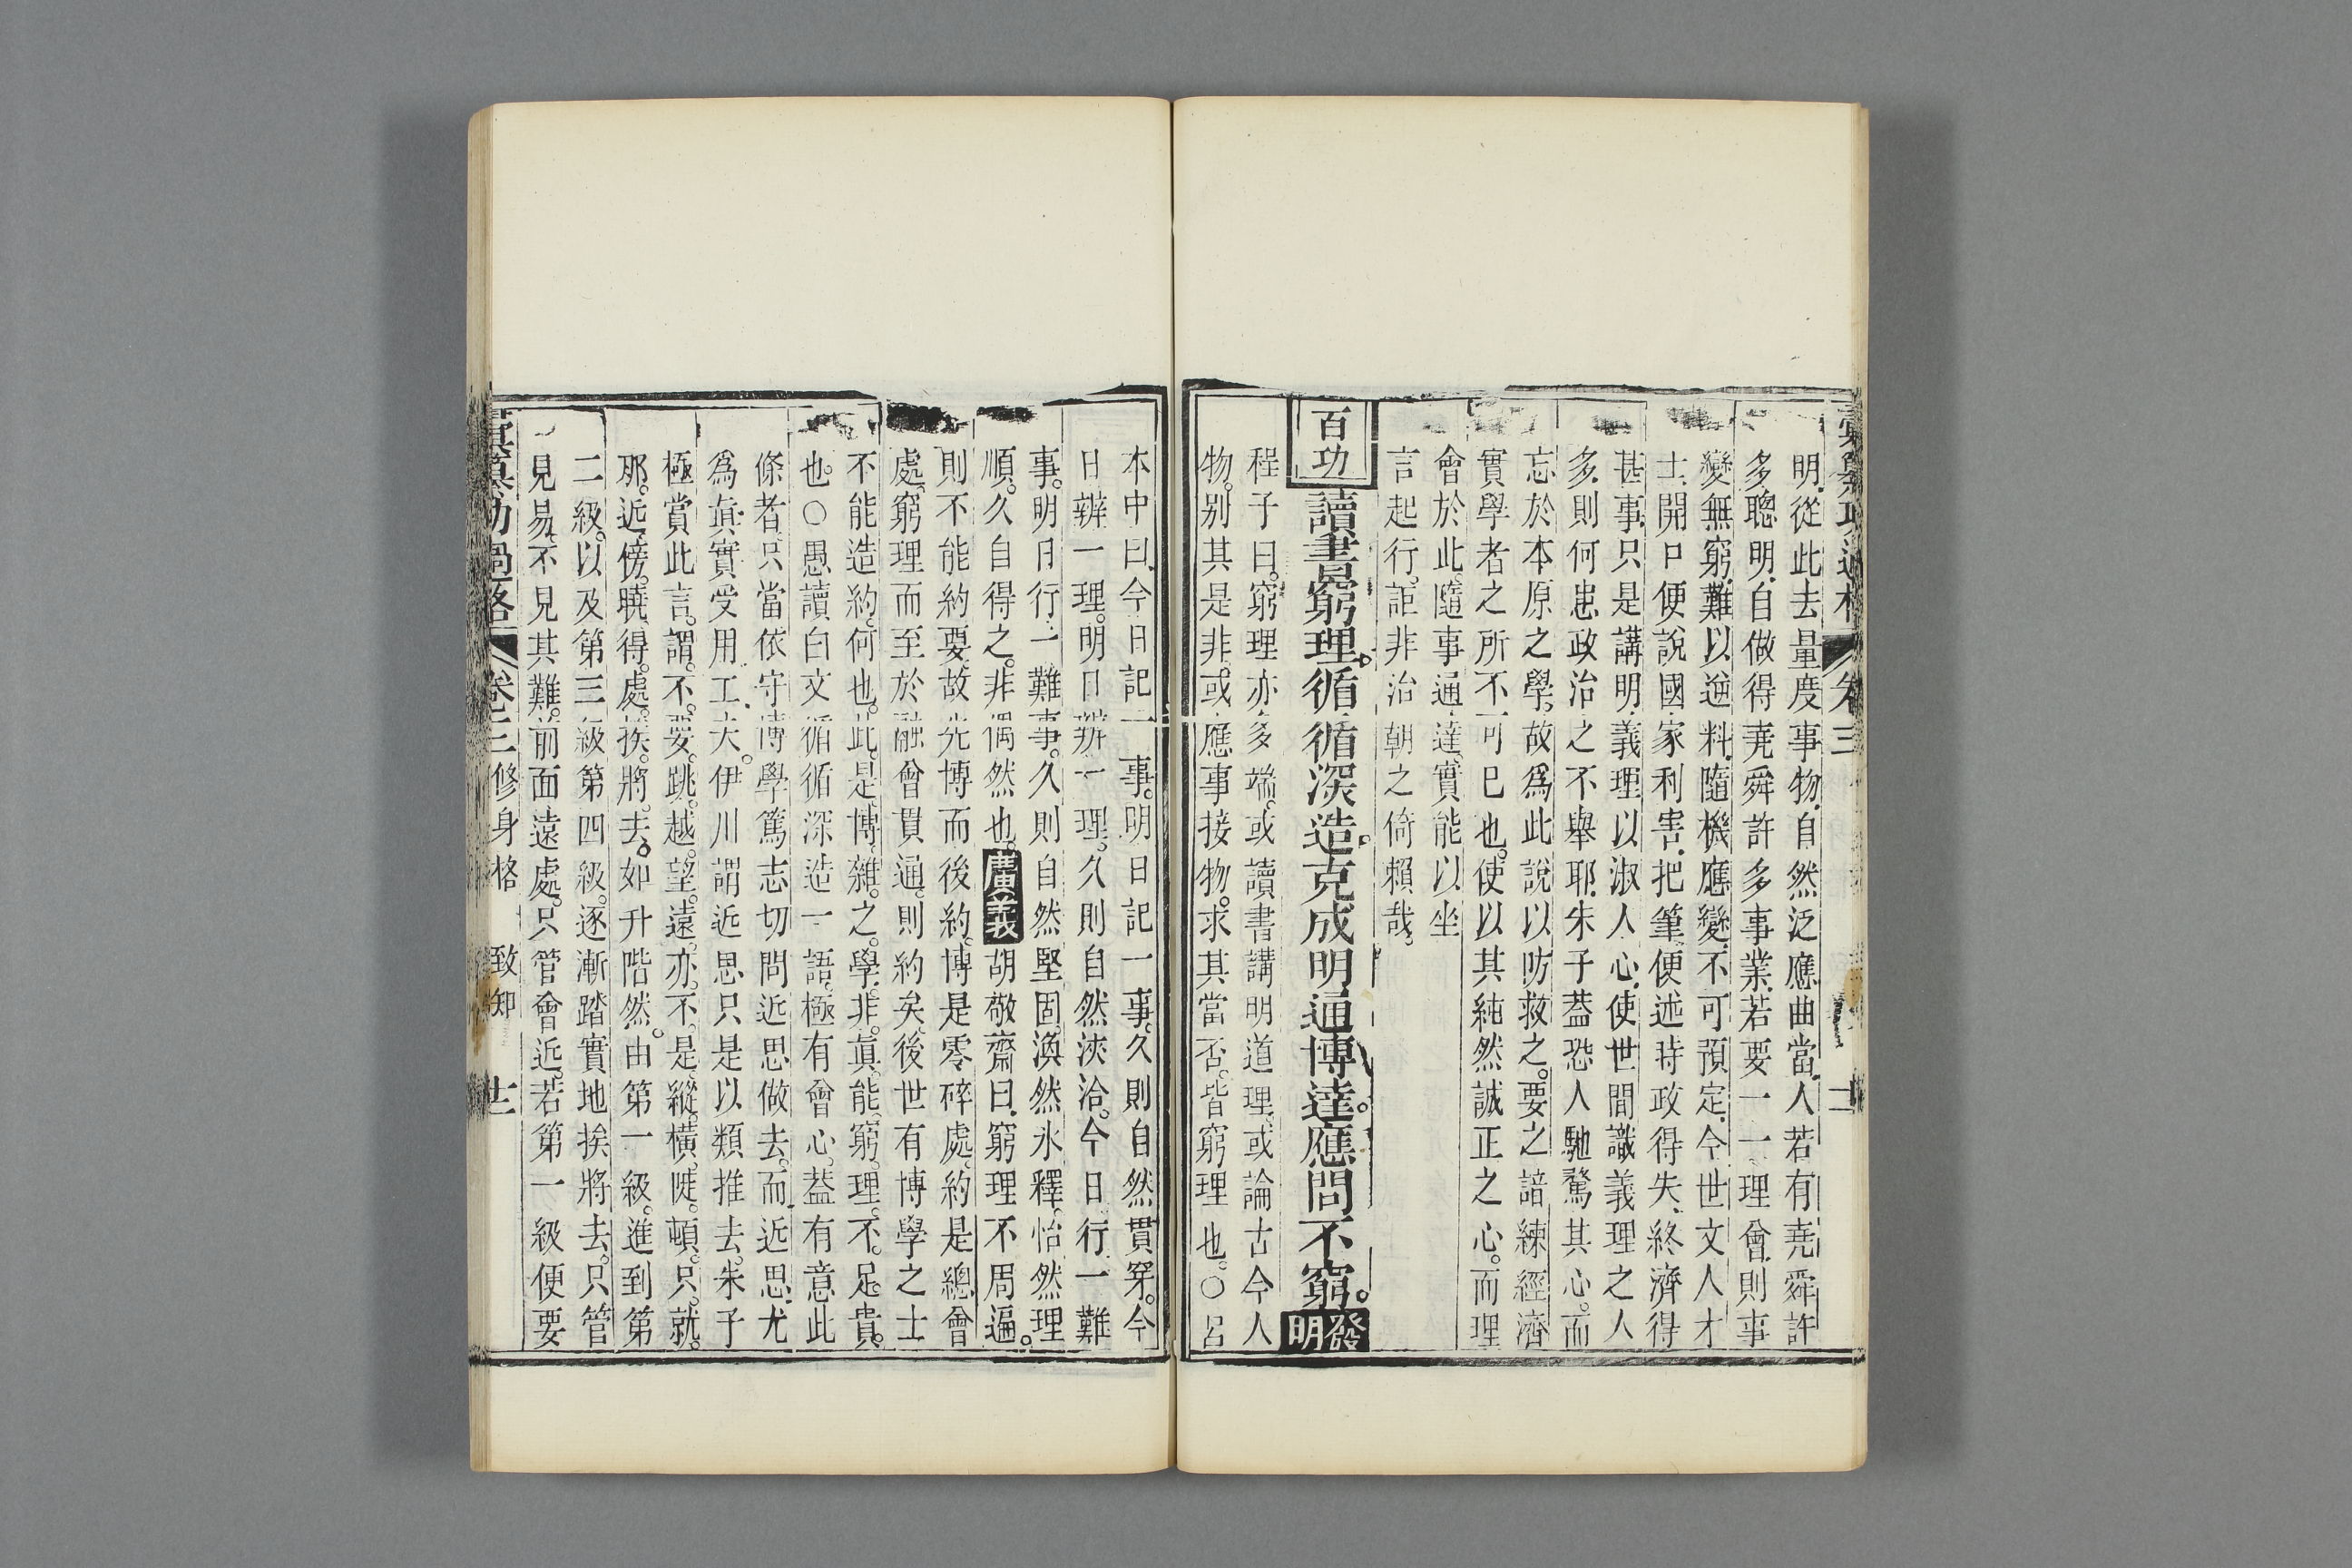 明從此去量度事物自然泛應曲當人若有堯舜許
多聰明自做得堯舜許多事業若要一一理會則事
變無窮難以逆料隨機應變不可預定今世文人才
士開口便說國家利害把筆便述時政得失終濟得
甚事只是講明義理以淑人心使世間識義理之人
多則何患政治之不舉耶朱子蓋恐人馳騖其心而
忘於本原之學故爲此說以防救之要之諳練經濟
實學者之所不可已也使以其純然誠正之心而理
會於此隨事通達實能以坐
言起行詎非治朝之倚賴哉
百功 讀書窮理。循循深造。克成明通博達。應問不窮。發明
程子曰。窮理亦多端。或讀書講明道理。或論古今人
物。别其是非。或應事接物。求其當否。皆窮理也。○呂
本中曰今日記一事。明日記一事。久則自然貫穿。今
日辨一理。明日辨一理。久則自然浹洽。今日行一難
事。明日行一難事。久則自然堅固。渙然氷釋。怡然理
順。久自得之。非偶然也。廣義胡敬齋曰。窮理不周遍。
則不能約要。故先博而後約。博是零碎處。約是總會
處。窮理而至於融會貫通。則約矣。後世有博學之士
不能造約。何也。此是博雜之學。非眞能窮理。不足貴
也。○愚讀白文循循深造一語。極有會心。葢有意此
條者。只當依守博學篤志切問近思做去。而近思尤
爲眞實受用工夫。伊川謂近思只是以類推去。朱子
極賞此言。謂不要跳越望遠。亦不是縱橫陡頓。只就
那近傍曉得處挨將去。如升階然。由第一級。進到第
二級。以及第三級第四級。逐漸踏實地挨將去。只管
見易。不見其難。前面遠處。只管會近。若第一級便要
卷三 修身格 致知